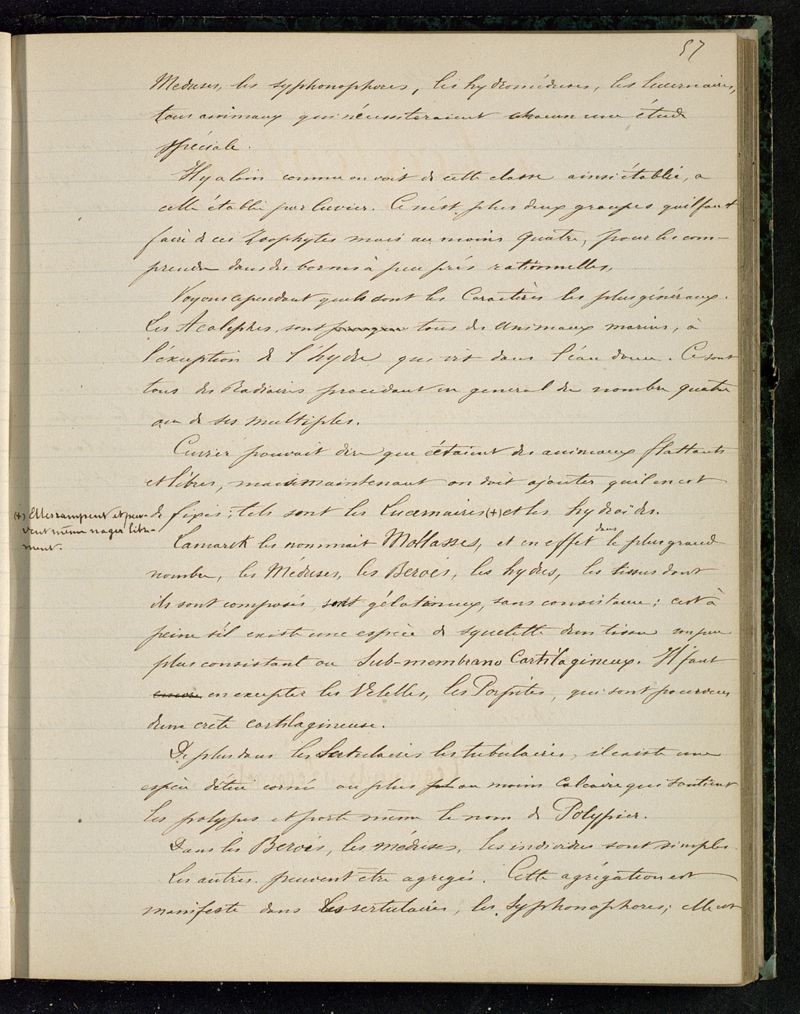 57
Méduses, les syphonophores, les hydroméduses, les lucernaires,
tous animaux qui nécessiteraient chacun une étude
spéciale.
Il y a loin comme on voit de cette classe ainsi établie, a
celle établie par Cuvier. Ce n'est plus deux groupes qu'il faut
faire de ces Zoophytes mais au moins quatre, pour les com-
prendre dans des bornes à peu près rationnelles.
Voyons cependant quels sont les Caractères les plus généraux.
Les Acalèphes, sont tous des animaux marins, à
l'éxception de l'hydre qui vit dans l'eau douce. Ce sont
tous des Radiaires procédant en general du nombre quatre
ou de ses multiples.
Cuvier pouvait dire que c'étaient des animaux flottants
et libres, mais maintenant on doit ajouter qu'il en est
de fixés; tels sont les Lucernaires (+) et les hydroïdes.
(+) Elles rampent et peu-
vent même nager libre-
ment.
Lamarck les nommait Mollasses, et en effet dans le plus grand
nombre, les Méduses, les Beroes, les hydres, les tissus dont
ils sont composés, sont gélatineux, sans consistance; c'est à
peine s'il existe une espèce de squelette d'un tissu un peu
plus consistant ou Sub-membrano Cartilagineux. Il faut
encore en excepter les Velelles, les Porpites, qui sont pourvues
d'une crête cartilagineuse.
De plus dans les Sertulaires les tubulaires, il existe une
espèce d'étui corné ou plus ou moins Calcaire qui soutient
les polypes et porte même le nom de Polypier.
Dans les Beroés, les médûses, les individus sont simples.
Les autres peuvent être agrégés. Cette agrégation est
manifeste dans les sertulaires, les Syphonophores; elle est